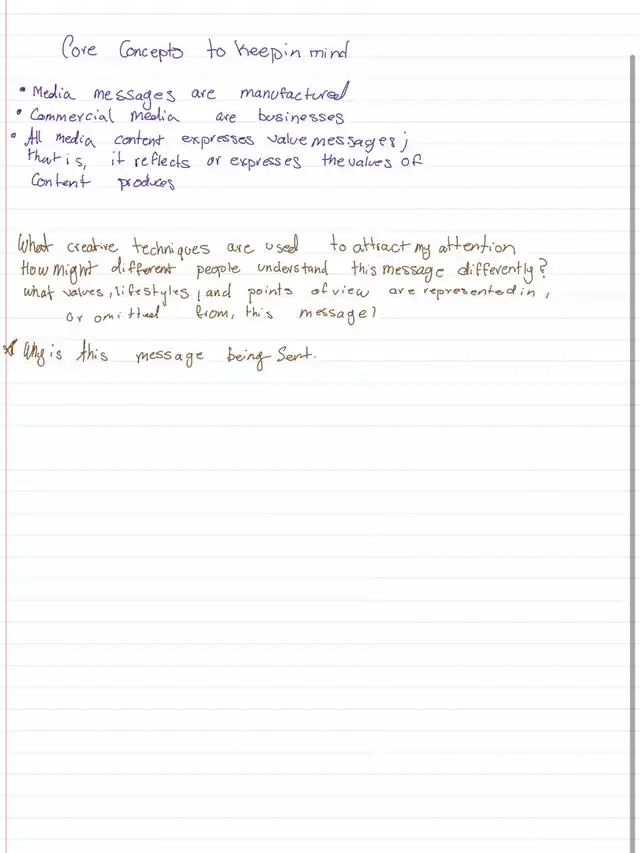 Core Concepts to keep in mind
• Media messages are manufactured
• Commercial media are businesses
• All media content expresses value messages;
that is, it reflects or expresses the values of
Content produces
What creative techniques are used to attract my attention
How might different people understand this message differently?
what values, lifestyles, and points of view are represented in,
or omitted from, this message?
* Why is this message being sent.